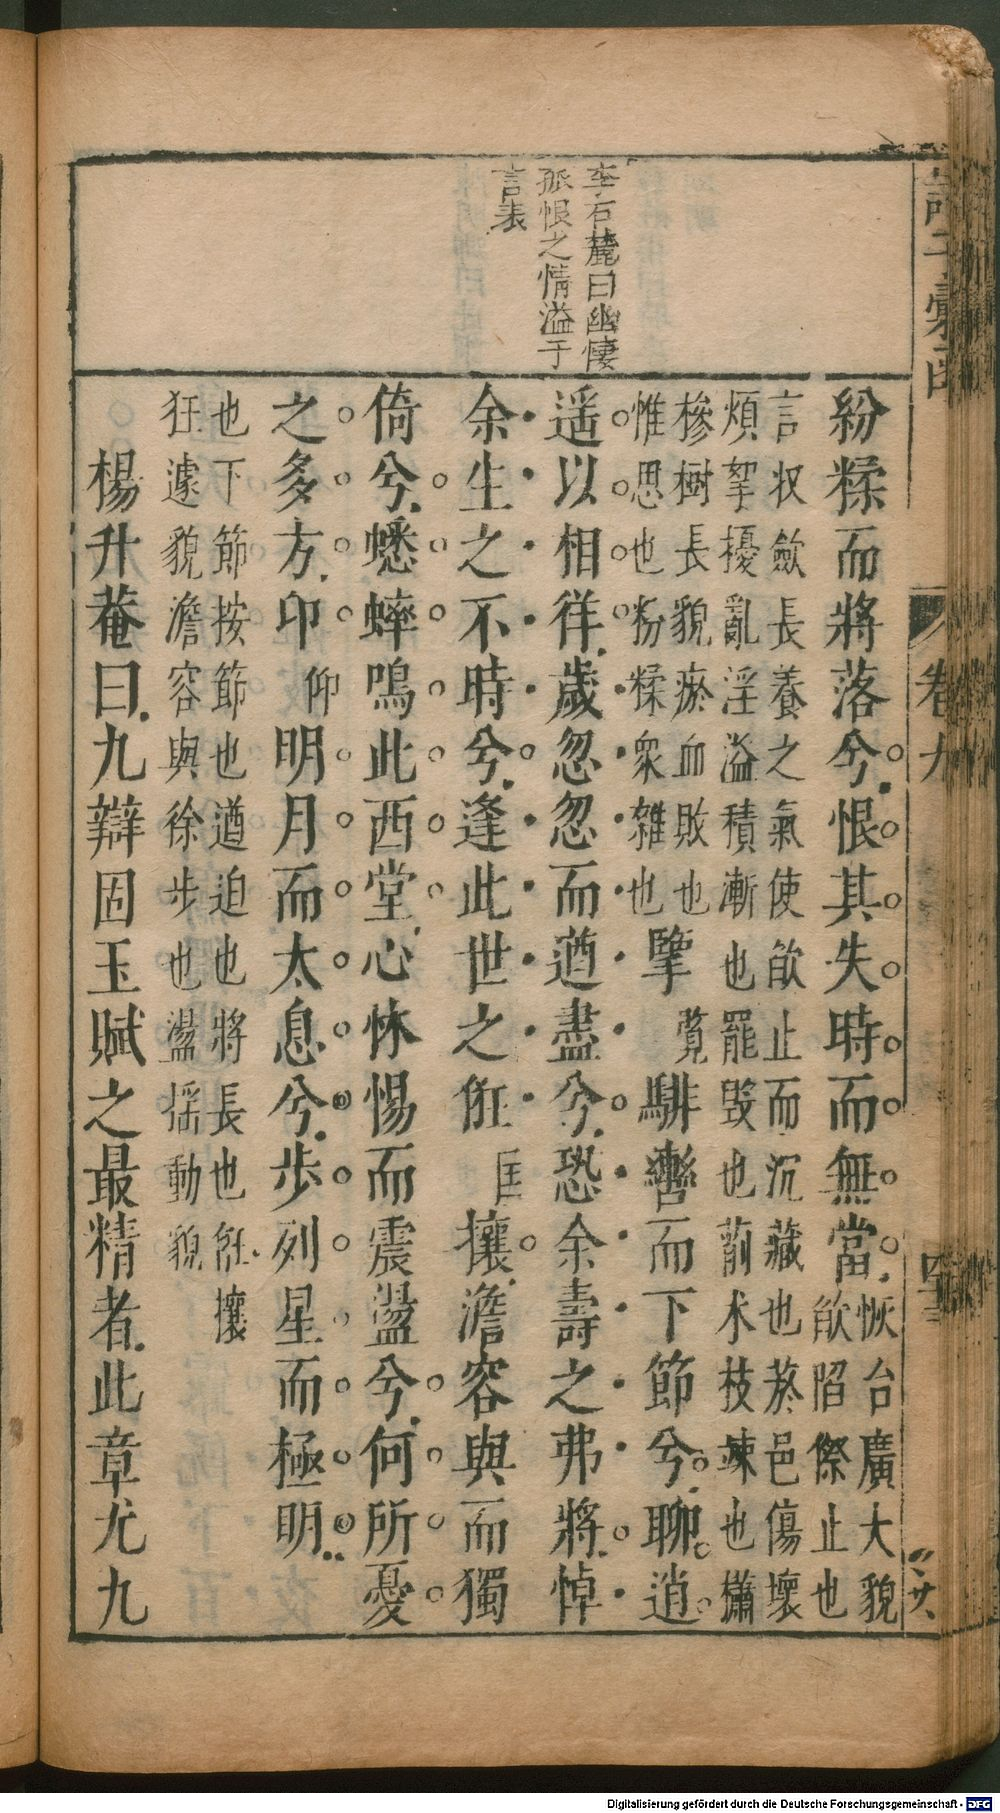 李石麓曰幽悽
孤恨之情溢于
言表
紛糅而將落兮恨其失時而無當恢台廣大貌
欿㒀傺止也
言收歛長養之氣使欿止而沉藏也菸邑傷壞
煩挐擾亂淫溢積漸也罷毀也萷木枝竦也櫹
槮樹長貌瘀血敗也
惟思也粉糅衆雜也
擥覽騑轡而下節兮聊逍
遥以相徉歲忽忽而遒盡兮恐余壽之弗將悼
余生之不時兮逢此世之俇匡攘澹容與而獨
倚兮蟋蟀鳴此西堂心怵惕而震盪兮何所憂
之多方卬仰明月而太息兮步列星而極明
也下節按節也遒迫也將長也俇攘
狂遽貌澹容與徐步也盪揺動貌
楊升菴曰九辯固玉賦之最精者此章尤九
卷九
Digitalisierung gefördert durch die Deutsche Forschungsgemeinschaft - DFG